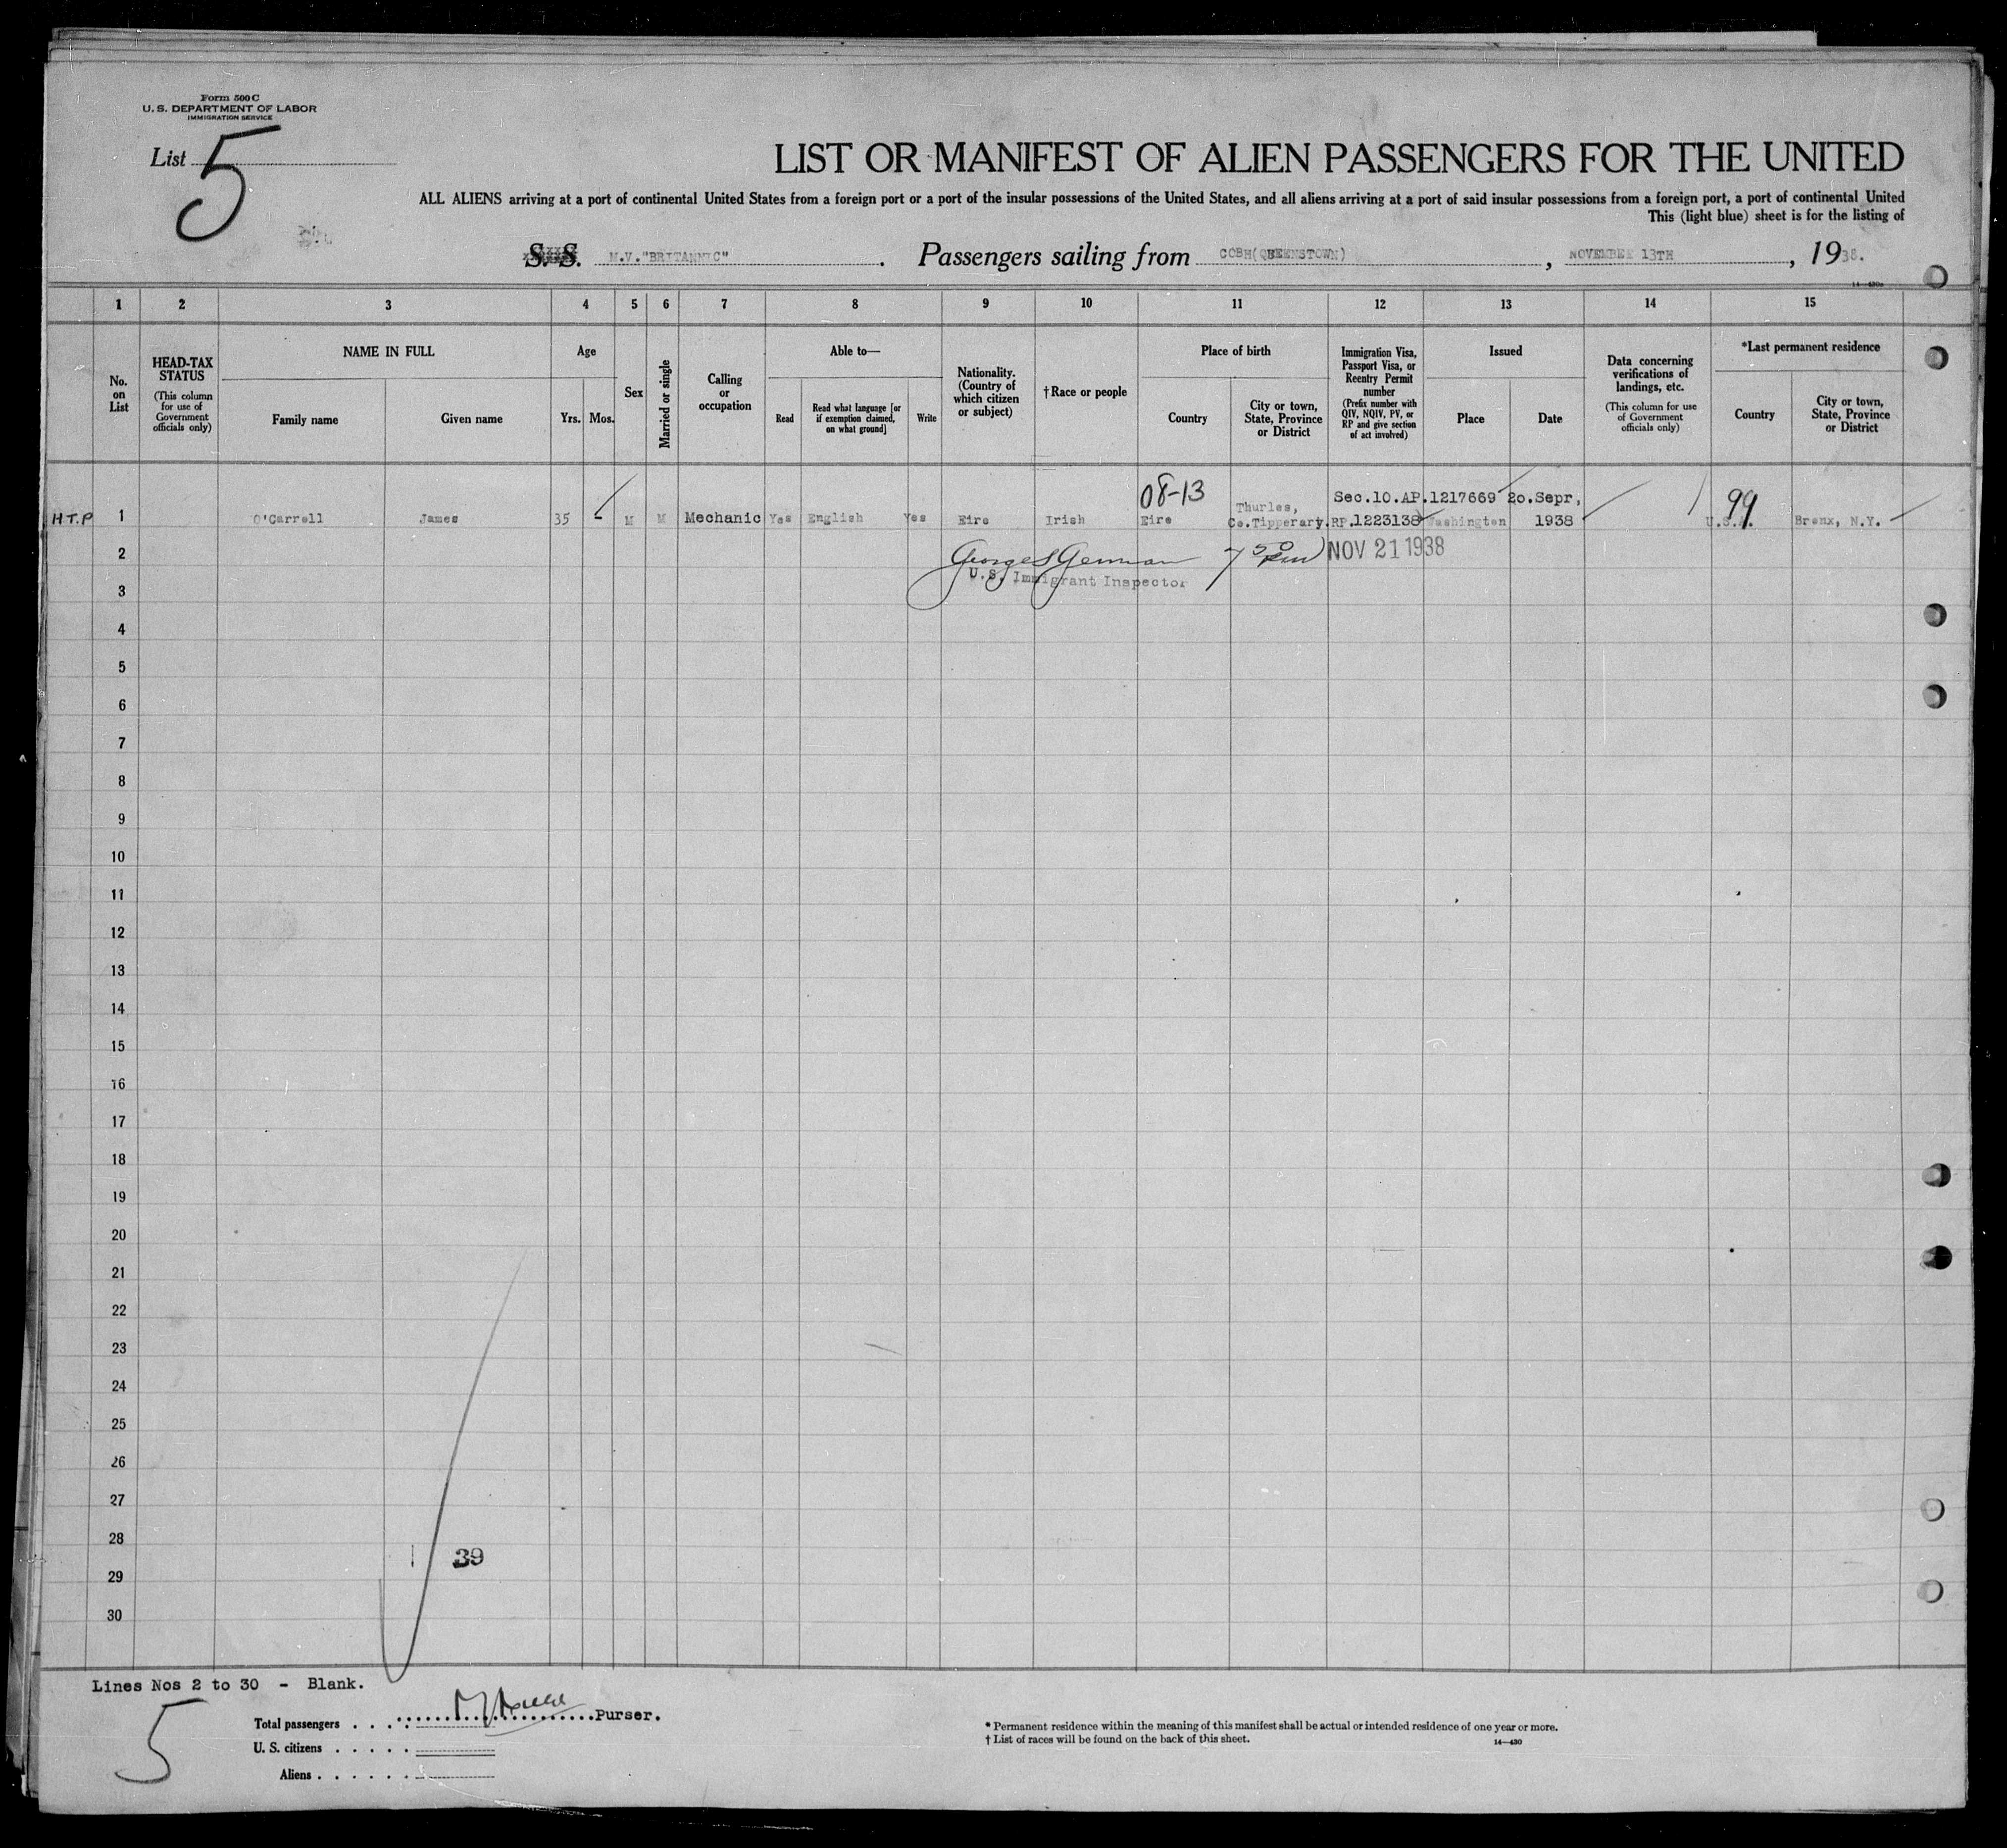 Form 500 C
U. S. DEPARTMENT OF LABOR
IMMIGRATION SERVICE
List 5
LIST OR MANIFEST OF ALIEN PASSENGERS FOR THE UNITED
ALL ALIENS arriving at a port of continental United States from a foreign port or a port of the insular possessions of the United States, and all aliens arriving at a port of said insular possessions from a foreign port, a port of continental United
This (light blue) sheet is for the listing of
S. S. M.V."BRITANNIC". Passengers sailing from COBH(QUEENSTOWN), NOVEMBER 13TH, 1938.
14—430a
1 2 3 4 5 6 7 8 9 10 11 12 13 14 15
No. on List
HEAD-TAX STATUS
(This column for use of Government officials only)
NAME IN FULL
Family name
Given name
Age
Yrs.
Mos.
Sex
Married or single
Calling or occupation
Able to—
Read
Read what language [or if exemption claimed, on what ground]
Write
Nationality. (Country of which citizen or subject)
†Race or people
Place of birth
Country
City or town, State, Province or District
Immigration Visa, Passport Visa, or Reentry Permit number
(Prefix number with QIV, NQIV, PV, or RP and give section of act involved)
Issued
Place
Date
Data concerning verifications of landings, etc.
(This column for use of Government officials only)
*Last permanent residence
Country
City or town, State, Province or District
08-13 Thurles, Sec.10.AP.1217669 20.Sepr, 99
H T.P 1 O'Carroll James 35 - M M Mechanic Yes English Yes Eire Irish Eire Co.Tipperary. RP.1223138 Washington 1938 U.S.A. Bronx, N.Y.
2 NOV 21 1938
U.S. Immigrant Inspector
3
4
5
6
7
8
9
10
11
12
13
14
15
16
17
18
19
20
21
22
23
24
25
26
27
28
39
29
30
Lines Nos 2 to 30 - Blank.
5
Purser.
Total passengers
U. S. citizens
Aliens
* Permanent residence within the meaning of this manifest shall be actual or intended residence of one year or more.
† List of races will be found on the back of this sheet.
14—430